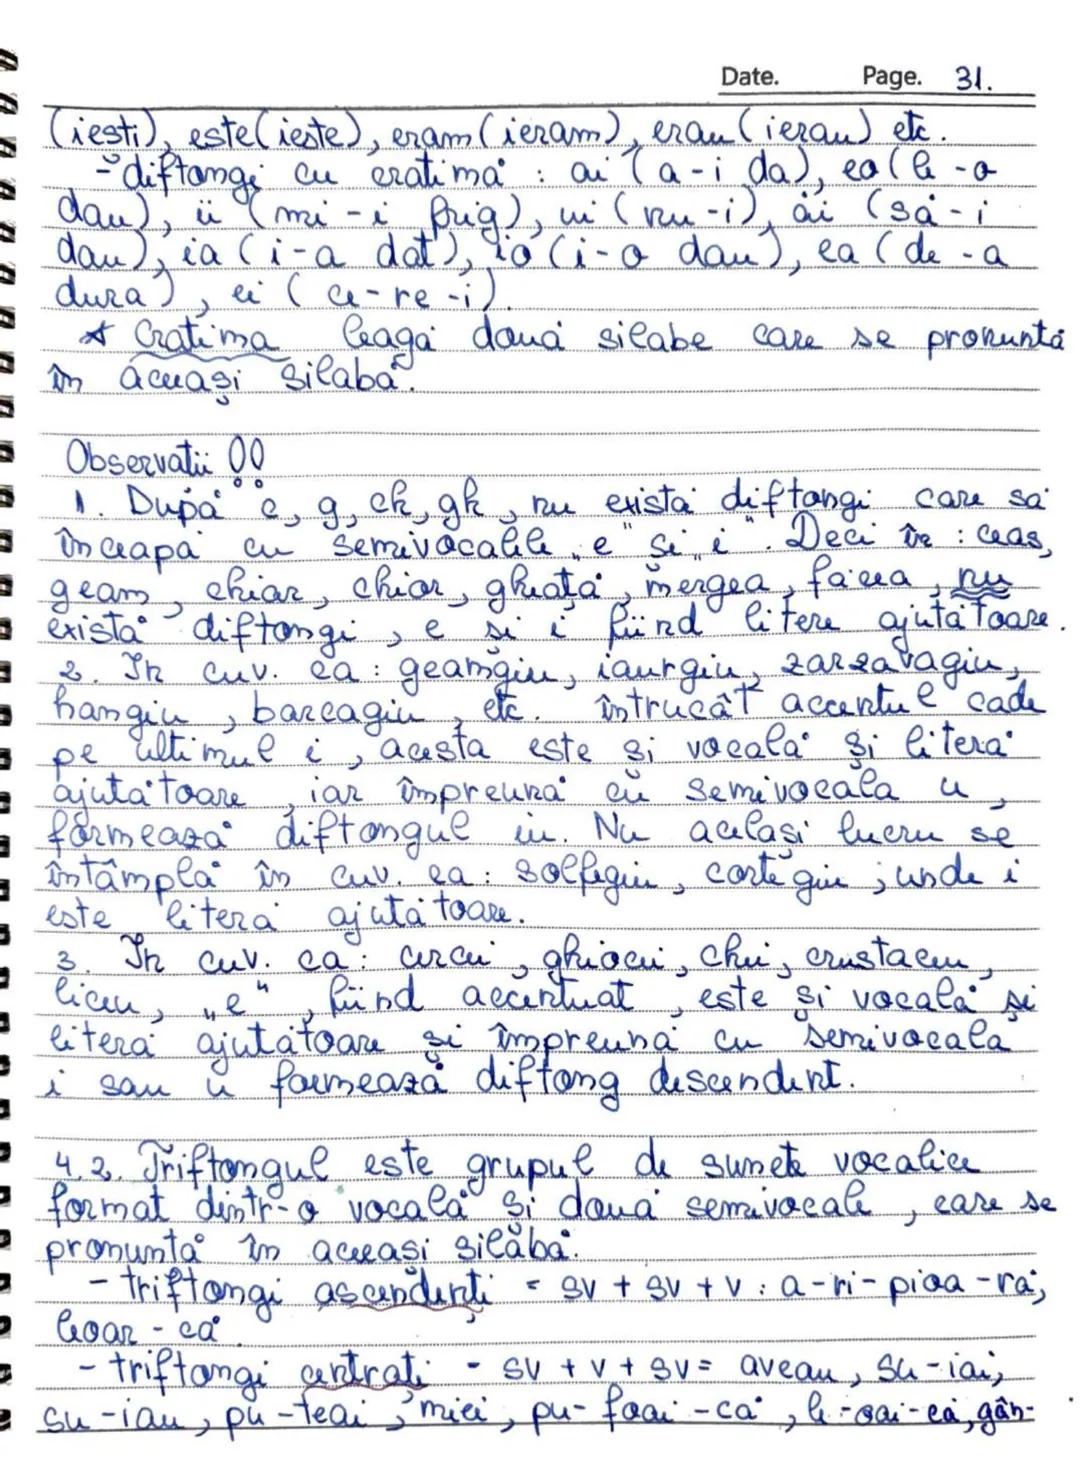 Date. Page. 31.
(iești), este(ieste), eram(ieram), erau(ierau) etc.
- diftongi cu cratimă : ai (a-i da), eo(le-o
dau), ii (mi-i frig), ui (nu-i), ăi (să-i
dau), ia (i-a dat), io (i-o dau), ea (de-a
dura), ei (ce-re-i).
* Cratima leagă două silabe care se pronunță
în aceași silabă.
Observații !!
1. După c, g, ch, gh, nu există diftongi care să
înceapă cu semivocalele „e" și „i". Deci în : ceas,
geam, chiar, chior, gheață, mergea, făcea, nu
există diftongi, e și i fiind litere ajutătoare.
2. În cuv. ca : geamgiu, iaurgiu, zarzavagiu,
hangiu, barcagiu, etc. întrucât accentul cade
pe ultimul i, acesta este și vocală și literă
ajutătoare, iar împreună cu semivocala u,
formează diftongul iu. Nu același lucru se
întâmplă în cuv. ca : solfegiu, cortegiu ; unde i
este literă ajutătoare.
3. În cuv. ca : cercei, ghiocei, chei, crustaceu,
liceu, „e", fiind accentuat, este și vocală și
literă ajutătoare și împreună cu semivocala
i sau u formează diftong descendent.
4.2. Triftongul este grupul de sunete vocalice
format dintr-o vocală și două semivocale, care se
pronunță în aceeași silabă.
- triftongi ascendenți = sv + sv + v : a-ri-pioa-ră,
leoar-că
- triftongi centrați - sv + v + sv = aveau, su-iai,
su-iau, pu-teai, miei, pu-foai-că, le-oai-că, gân-